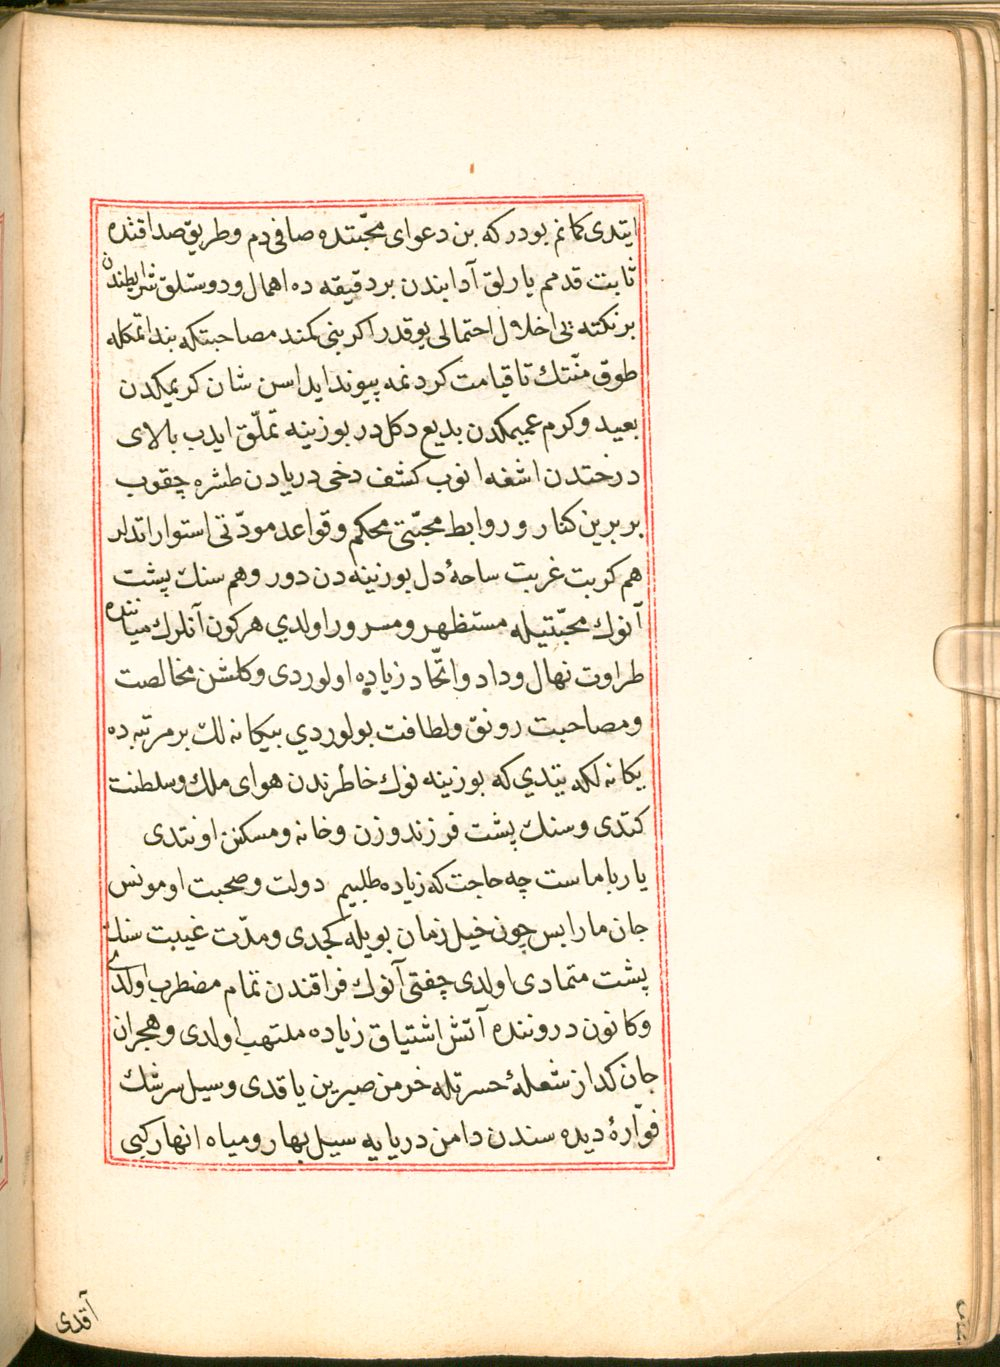 ایتدی کمانم بودرکه بن دعوای محبّتده صافی دم وطریق صداقتده
ثابت قدمم یارلق آدابندن بر دقیقه ده اهمال ودوستلق شرایطندن
بر نکته یی اخلال احتمالی یوقدر اکر بنی کمند مصاحبتکه بند اتمکله
طوق منّتك تا قیامت کردنمه پیوند ایداسن شان کریمکدن
بعید وکرم عمیمکدن بدیع دکلدر بوزینه تملّق ایدب بالای
درختدن اشغه انوب کشف دخی دریادن طشره چقوب
بر برین کنار و روابط محبّتی محکم وقواعد مودّتی استوار اتدلر
هم کربت غربت ساحهٔ دل بوزینه دن دور وهم سنك پشت
آنوك محبّتیله مستظهر ومسرور اولدي هرکون آنلرك میاننده
طراوت نهال وداد واتّحاد زیاده اولوردی وکلشن مخالصت
ومصاحبت رونق ولطافت بولوردي بیکانه لك بر مرتبه ده
یکانه لکه یتدي که بوزینه نوك خاطرندن هوای ملك وسلطنت
کتدی وسنك پشت فرزند وزن وخانه ومسکنن اونتدی
یار با ماست چه حاجت که زیاده طلبیم دولت وصحبت او مونس
جان ما را بس چون خیل زمان بویله کجدی ومدّت غیبت سنك
پشت متمادی اولدی چفتی آنوك فراقندن تمام مضطرب اولدی
وکانون درونند‌ه آتش اشتیاق زیاده ملتهب اولدی وهجران
جان کداز شعلهٔ حسرتله خرمن صبرین یاقدی وسیل سرشك
فوّارهٔ دیده سندن دامن دریایه سیل بهار ومیاه انهار کبی
آقدی